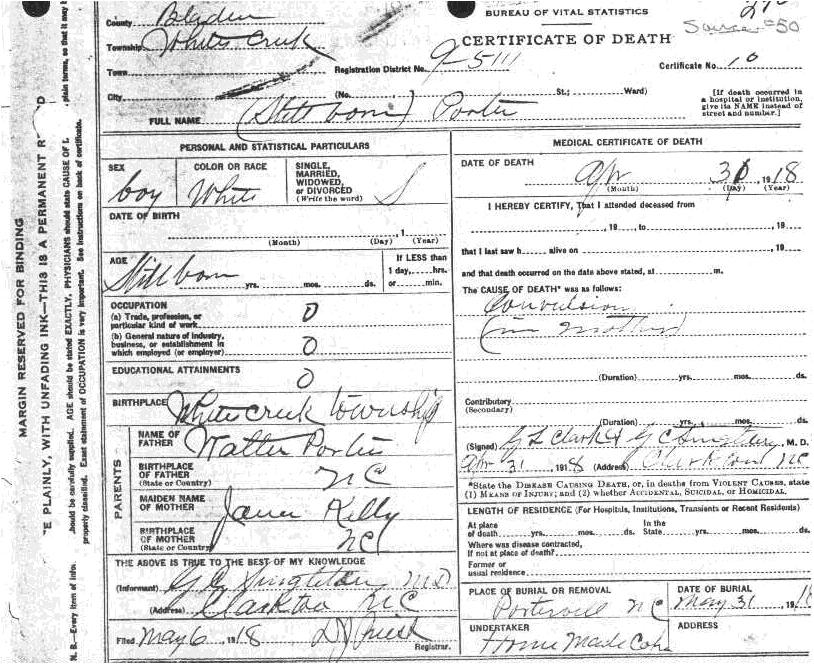 BUREAU OF VITAL STATISTICS
Source #50
CERTIFICATE OF DEATH
County Bladen
Township White Creek
Town
Registration District No. 9-5111 Certificate No. 10
City (No. St.; Ward) [If death occurred in a hospital or institution, give its NAME instead of street and number.]
FULL NAME (Still born) Porter
PERSONAL AND STATISTICAL PARTICULARS
SEX boy
COLOR OR RACE White
SINGLE, MARRIED, WIDOWED, or DIVORCED (Write the word) S
DATE OF BIRTH
, 1
(Month) (Day) (Year)
AGE Still born yrs. mos. ds.
If LESS than 1 day, hrs. or min.
OCCUPATION
(a) Trade, profession, or particular kind of work 0
(b) General nature of industry, business, or establishment in which employed (or employer) 0
EDUCATIONAL ATTAINMENTS 0
BIRTHPLACE White Creek township
PARENTS
NAME OF FATHER Walter Porter
BIRTHPLACE OF FATHER (State or Country) NC
MAIDEN NAME OF MOTHER Kelly
BIRTHPLACE OF MOTHER (State or Country) NC
THE ABOVE IS TRUE TO THE BEST OF MY KNOWLEDGE
(Informant) G C Singletary MD
(Address) Clarkton NC
Filed May 6 1918
Registrar.
MEDICAL CERTIFICATE OF DEATH
DATE OF DEATH Apr , 1918
(Month) (Day) (Year)
I HEREBY CERTIFY, That I attended deceased from
, 19 , to , 19
that I last saw h alive on , 19
and that death occurred on the date above stated, at m.
The CAUSE OF DEATH* was as follows:
Convulsion
(in Mother)
(Duration) yrs. mos. ds.
Contributory (Secondary)
(Duration) yrs. mos. ds.
(Signed) G L Clark & G C Singletary, M. D.
Apr 31 1918 (Address) Clarkton NC
*State the DISEASE CAUSING DEATH, or, in deaths from VIOLENT CAUSES, state (1) MEANS OF INJURY; and (2) whether ACCIDENTAL, SUICIDAL, or HOMICIDAL.
LENGTH OF RESIDENCE (For Hospitals, Institutions, Transients or Recent Residents)
At place of death yrs. mos. ds. In the State yrs. mos. ds.
Where was disease contracted, If not at place of death?
Former or usual residence
PLACE OF BURIAL OR REMOVAL NC
DATE OF BURIAL May 31 , 191
UNDERTAKER Home Made
ADDRESS
MARGIN RESERVED FOR BINDING
E PLAINLY, WITH UNFADING INK—THIS IS A PERMANENT R
N. B.—Every item of info.
ould be carefully supplied. AGE should be stated EXACTLY. PHYSICIANS should state CAUSE OF
plain terms, so that it may
properly classified. Exact statement of OCCUPATION is very important. See instructions on back of certificate.